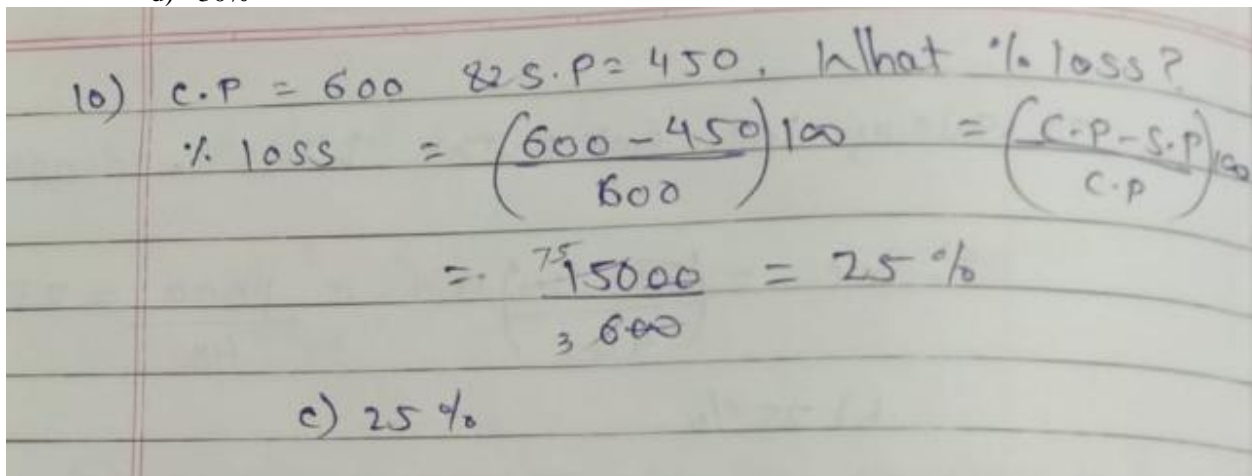 10) C.P = 600 & S.P = 450. What % loss?
% loss = (600 - 450 / 600) 100 = (C.P - S.P / C.P) 100
= 75 15000 / 3 600 = 25 %
c) 25 %